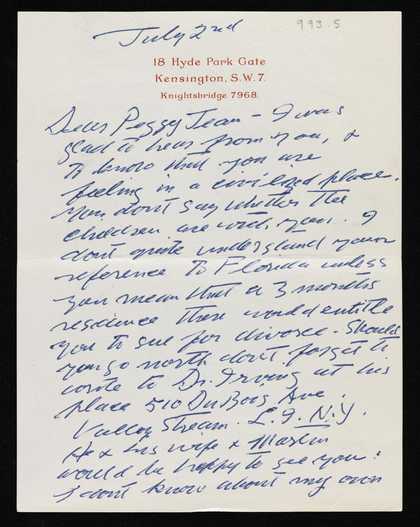 993.5
July 2nd
18 Hyde Park Gate
Kensington, S.W. 7.
Knightsbridge 7968.
Dear Peggy Jean – I was
glad to hear from you, &
to know that you are
feeling in a civilized place.
You don't say whether the
children are with you. I
don't quite understand your
reference to Florida unless
you mean that a 3 months
residence there would entitle
you to sue for divorce. Should
you go north don't forget to
write to Dr. Irving at his
place 510 DuBois Ave.
Valley Stream. L.I. N.Y.
He & his wife &
would be happy to see you.
I don't know about my own